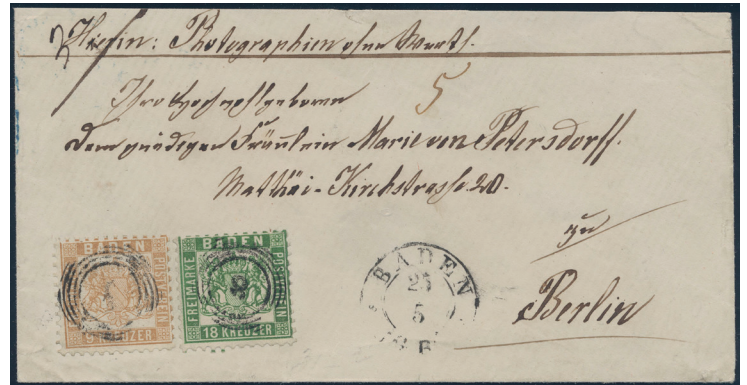 Hierin: Photographien ohne Werth.
5
Ihro Hochwohlgeboren
Dem gnädigen Fräulein Marie von Petersdorff.
Matthäi-Kirchstrasse 20.
zu
Berlin
BADEN
POSTVEREIN
9 KREUZER
BADEN
FREIMARKE
POSTVEREIN
18 KREUZER
BADEN
25
5
B